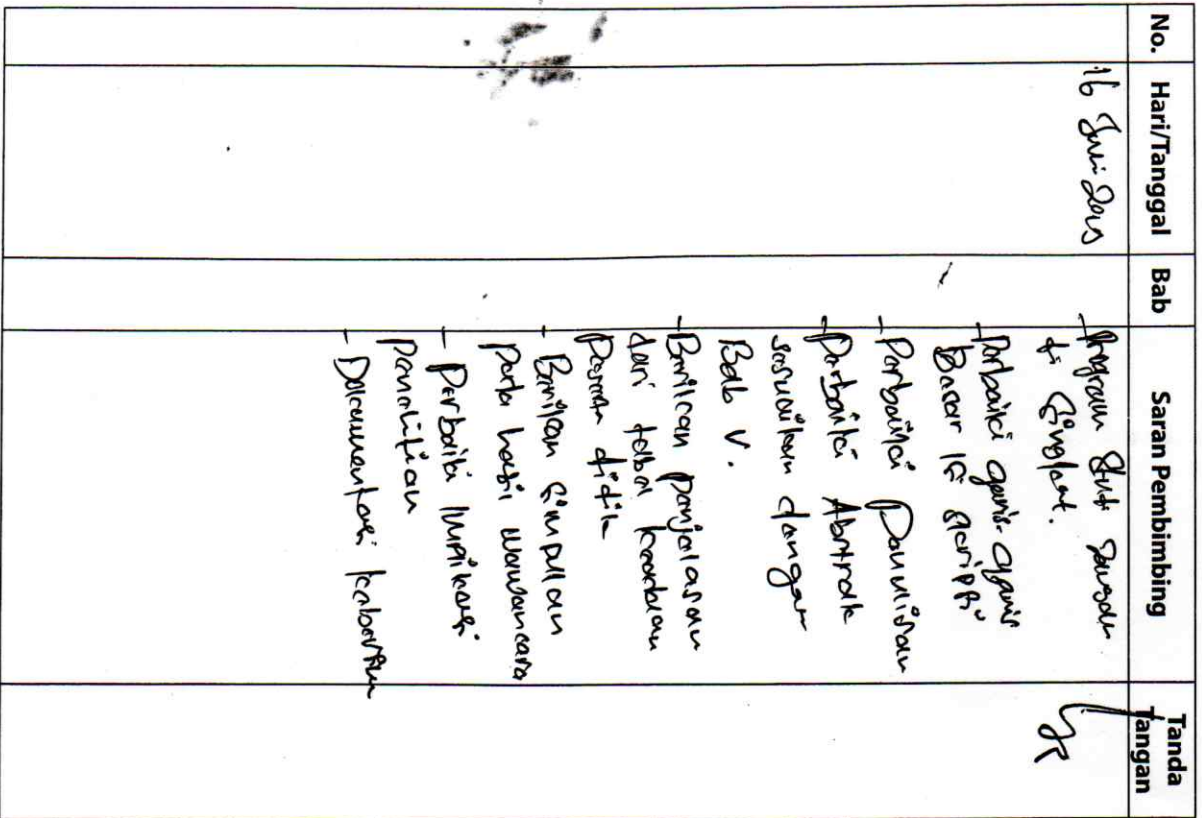 No. Hari/Tanggal Bab Saran Pembimbing Tanda Tangan
16 Juni 2015
- Program Studi Jangan
di Singkat.
- Perbaiki garis-garis
Besar isi skripsi
- Perbaiki Penulisan
- Perbaiki Abstrak
sesuaikan dengan
Bab V.
- Berikan penjelasan
dari tabel keadaan
Peserta didik
- Berikan simpulan
pada hasil wawancara
- Perbaiki Implikasi
penelitian
- Dokumentasi